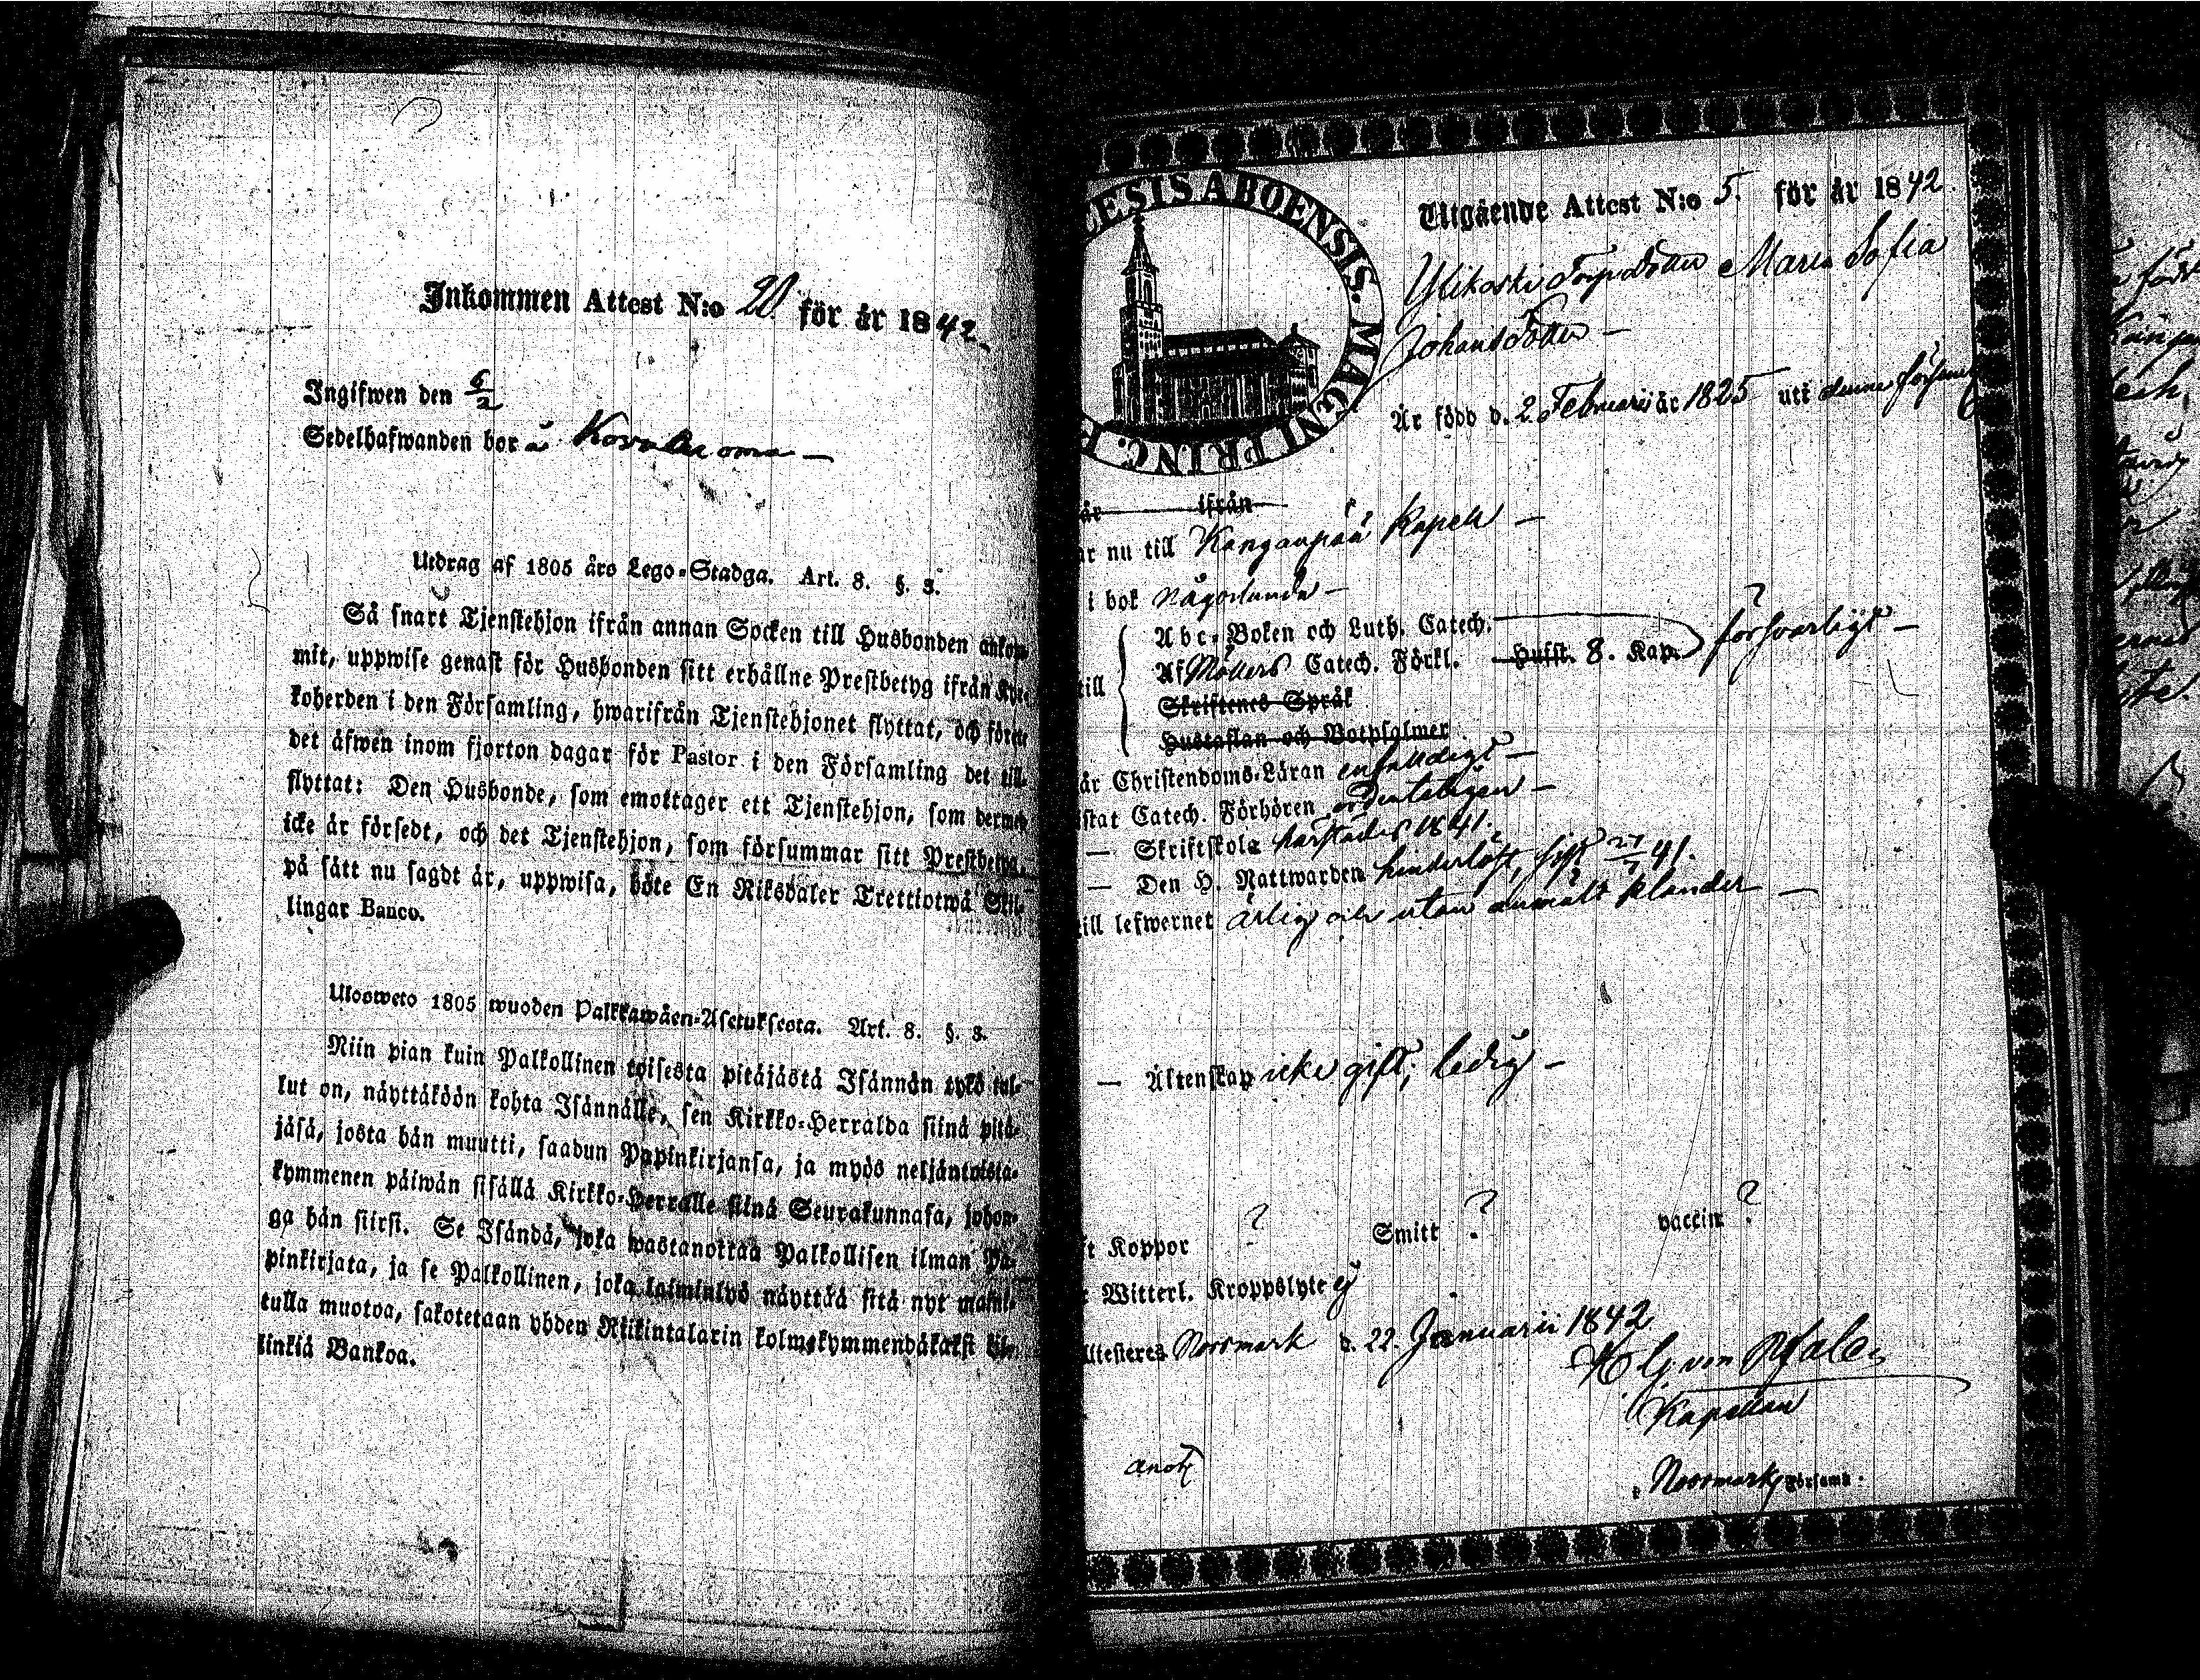 Inkommen Attest N:o 20. för år 1842.
Ingifwen den 6/2
Sedelhafwanden bor å
Utdrag af 1805 års Lego-Stadga. Art. 8. §. 3.
Så snart Tjenstehjon ifrån annan Socken till Husbonden ankom-
mit, uppwise genast för Husbonden sitt erhållne Prestbetyg ifrån Kyr-
koherden i den Församling, hwarifrån Tjenstehjonet flyttat, och förete
det äfwen inom fjorton dagar för Pastor i den Församling det till-
flyttat: Den Husbonde, som emottager ett Tjenstehjon, som dermed
icke är försedt, och det Tjenstehjon, som försummar sitt Prestbetyg,
på sätt nu sagdt är, uppwisa, böte En Riksdaler Trettiotwå Skil-
lingar Banco.
Ulosweto 1805 wuoden Palkkawäen-Asetuksesta. Art. 8. §. 3.
Niin pian kuin Palkollinen toisesta pitäjästä Isännän tykö tul-
lut on, näyttäköön kohta Isännälle, sen Kirkko-Herralda siinä pitä-
jäsä, josta hän muutti, saadun Papinkirjansa, ja myös neljäntoista-
kymmenen päiwän sisällä Kirkko-Herralle siinä Seurakunnasa, johon-
ga hän siirsi. Se Isändä, joka wastanottaa Palkollisen ilman Pa-
pinkirjata, ja se Palkollinen, joka laiminlyö näyttää sitä nyt maini-
tulla muotoa, sakotetaan yhden Riikintalarin kolmekymmendäkaksi kil-
linkiä Bankoa.
ESIS ABOENSIS. MAGNI PRINC. F
Utgående Attest N:o 5. för år 1842.
Ylikoski Torpdotter Maria Sofia
Johansdotter —
Är född d. 2 Februarii år 1825 uti denna församl
år ifrån
ar nu till Kanganpää Kapell —
i bok någorlunda —
till
Abc-Boken och Luth. Catech.
Af Möllers Catech. Förkl. Husst. 8. Kap. försvarligt —
Skriftenes Språk
Hustaflan och Botpsalmer
år Christendoms-Läran enfaldigt —
istat Catech. Förhören ordenteligen —
— Skriftskola härstädes 1841.
— Den H. Nattwarden hinderlöst, sist 27/7 41.
till lefwernet ärlig och utan anmält klander —
— Äktenskap icke gift, ledig —
ft Koppor ? Smitt ? vaccin ?
r Witterl. Kroppslyte ej
Attesteres Norrmark d. 22. Januarii 1842
von Pfaler
Kapellan
Norrmark Församl.
anot